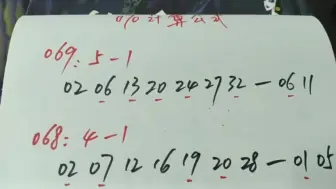 070计算公式
069: 5-1
02 06 13 20 24 27 32 — 06 11
068: 4-1
02 07 12 16 19 20 28 — 01 05